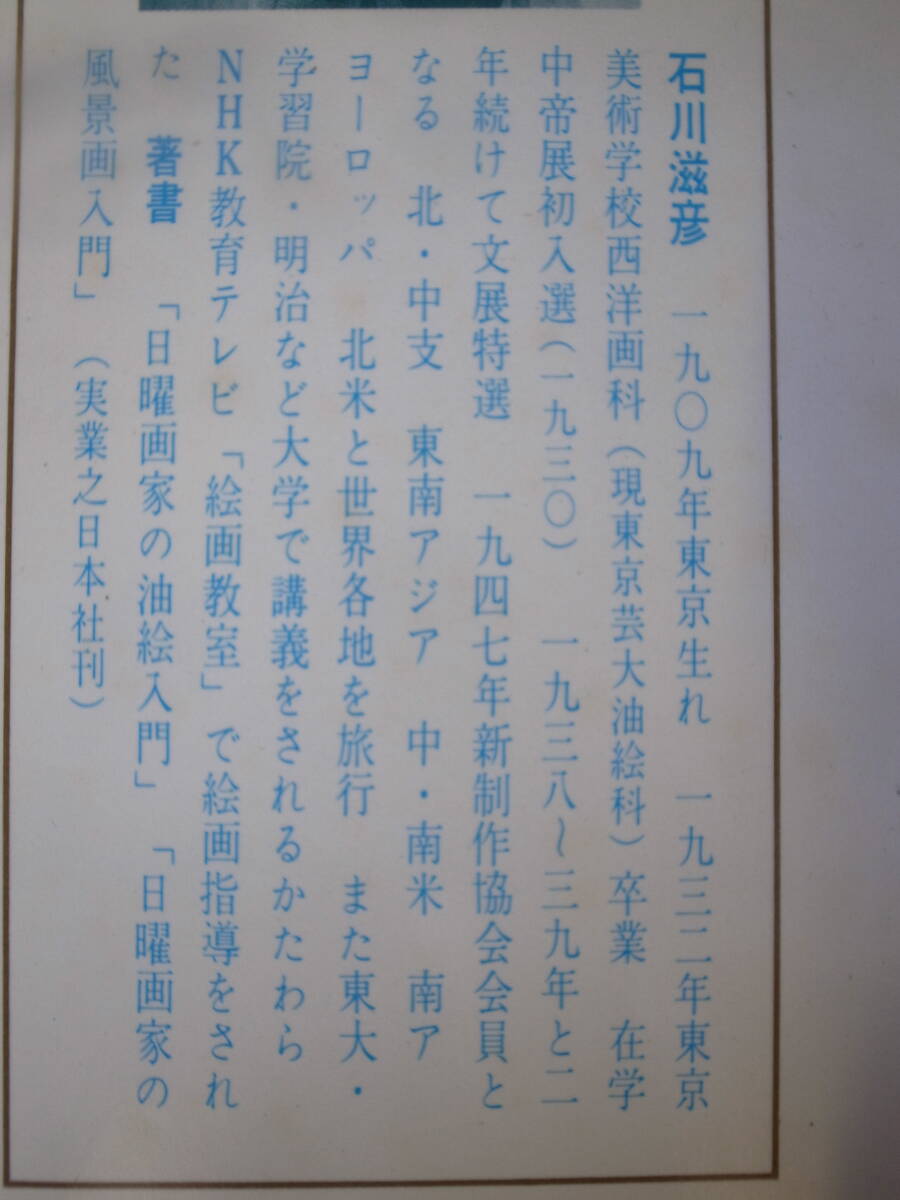 石川滋彦　一九〇九年東京生れ　一九三二年東京
美術学校西洋画科（現東京芸大油絵科）卒業　在学
中帝展初入選（一九三〇）　一九三八～三九年と二
年続けて文展特選　一九四七年新制作協会会員と
なる　北・中支　東南アジア　中・南米　南ア
ヨーロッパ　北米と世界各地を旅行　また東大・
学習院・明治など大学で講義をされるかたわら
NHK教育テレビ「絵画教室」で絵画指導をされ
た　著書　「日曜画家の油絵入門」　「日曜画家の
風景画入門」　（実業之日本社刊）